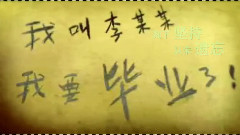 我叫李某某
我要毕业了！